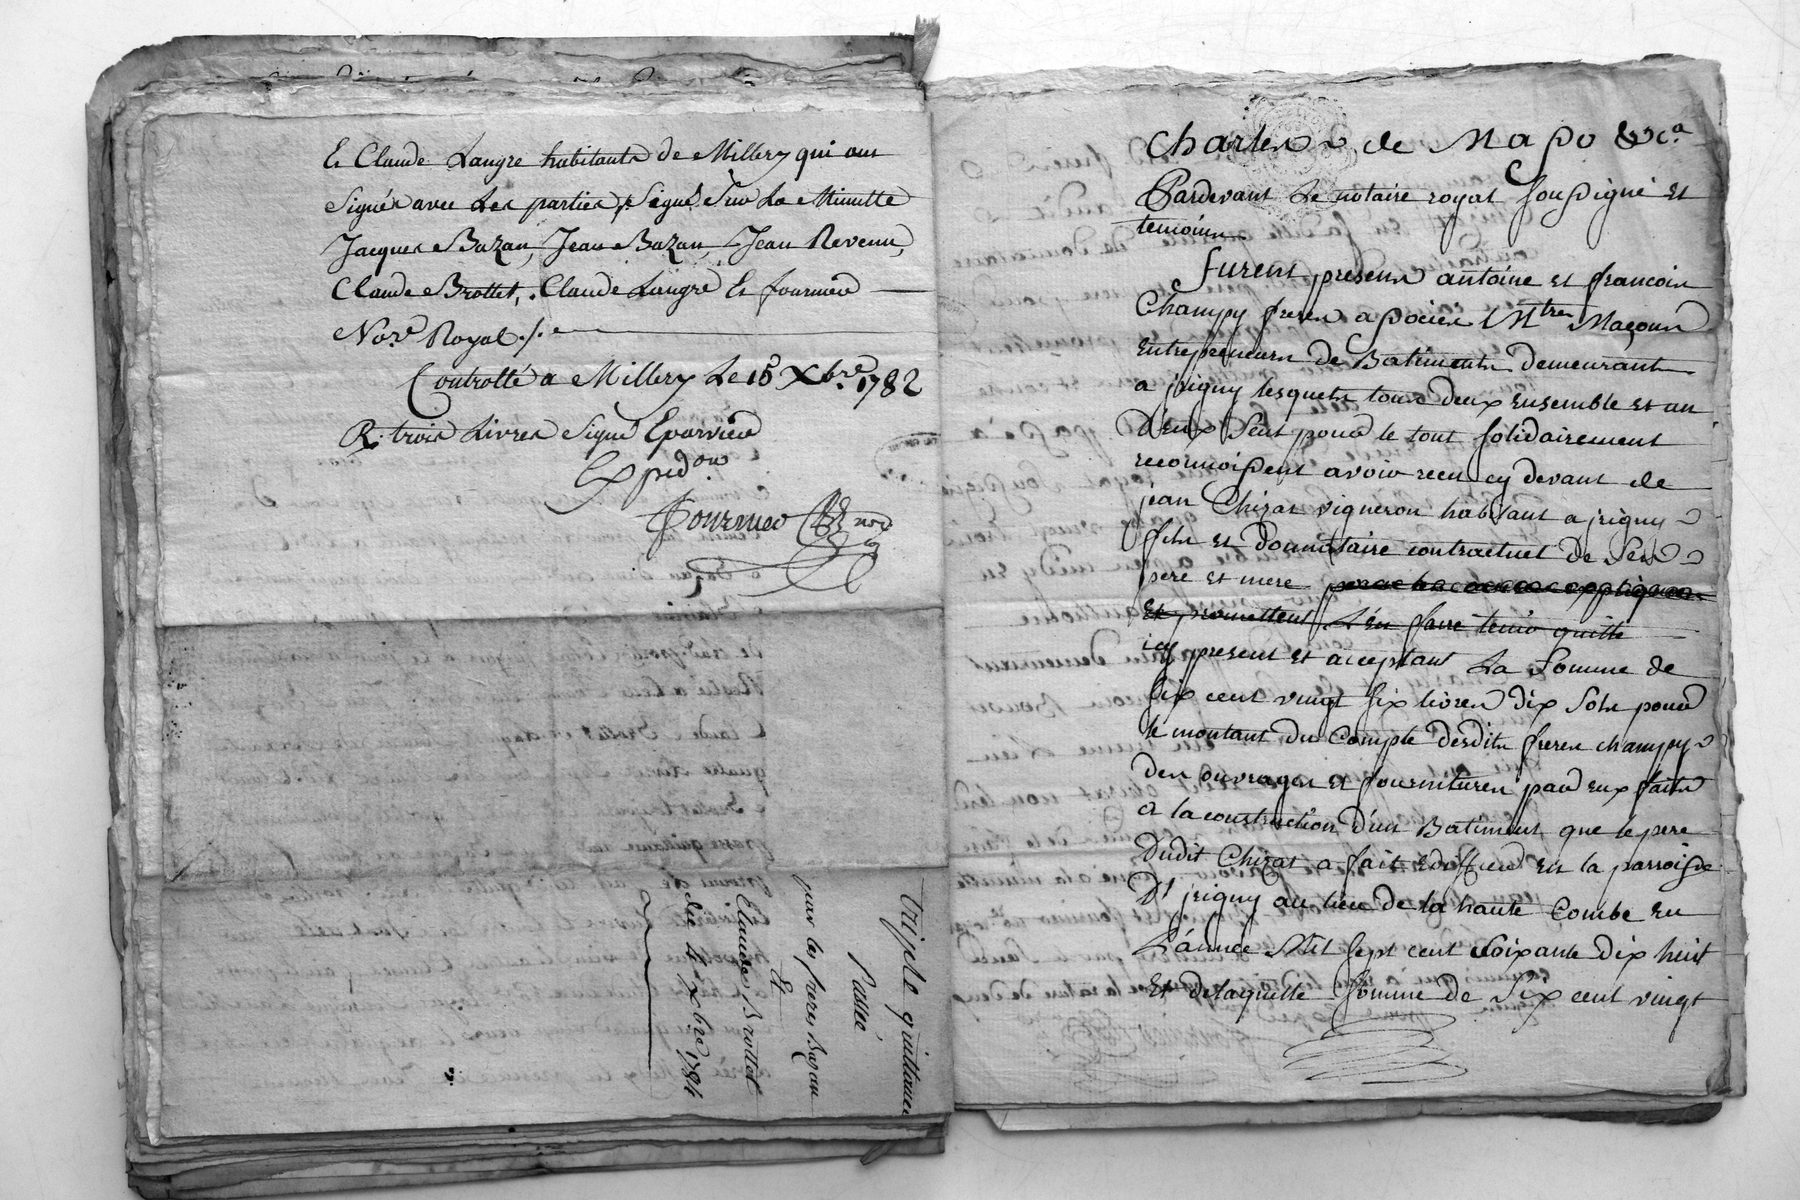 Et Claude Langre habitants de Millery qui ont
Signés avec Les parties, Signé Sur La Minutte
Jacques Bazan, Jean Bazan, Jean Revenu,
Claude Brottet, Claude Langre Et fournier
No.re Royal ./.
Controllé a Millery Le 15 Xbre 1782
R. trois Livres Signé Eparvier
Expid.on
Fournier
triple quittance
Passée
par les freres Bazan
Et
Claude Brottet
du 4 xbre 1784
Charles de Maso &c.a
Pardevant Le notaire royal soussigné et
temoins
furent presens antoine et francois
Champy freres associes M.tres Maçons
Entrepreneurs de Batiments demeurant
a jrigny lesquels tous deux ensemble et un
D'eux seul pour le tout solidairement
reconnoissent avoir recu cy devant de
jean Chizat vigneron habitant a jrigny
fils et donnataire contractuel de ses
pere et mere
Et promettent L'en faire tenir quitte
icy present et acceptant La somme de
six cent vingt six livres dix sols pour
le montant du Compte desdits freres champy
des ouvrages et fournitures par eux faits
a la construction d'un Batiment que le pere
dudit Chizat a fait ediffier en la parroisse
D'jrigny au lieu de la haute Combe en
L'année Mil sept cent soixante dix huit
Et de laquelle somme de six cent vingt